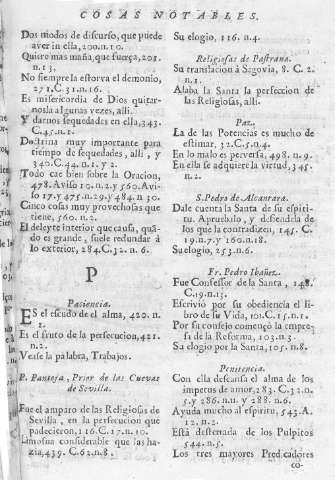 COSAS NOTABLES.
Dos modos de discurso, que puede
aver in ella, 200. n. 10.
Quiere mas maña, que fuerça, 201.
n. 13.
No siempre la estorva el demonio,
271. C. 31. n. 16.
Es misericordia de Dios quitar-
nosla algunas vezes, alli.
Y darnos sequedades en ella, 343.
C. 45. n. 1.
Doctrina muy importante para
tiempo de sequedades, alli, y
340. C. 44. n. 1. y 2.
Todo cae bien sobre la Oracion,
478. Aviso 10. n. 2. y 560. Avi-
so 17. y 475. n. 29. y 484. n. 30.
Cinco cosas muy provechosas que
tiene, 560. n. 2.
El deleyte interior que causa, quā-
do es grande, suele redundar à
lo exterior, 284. C. 32. n. 6.
P
Paciencia.
ES el escudo de el alma, 420. n.
1.
Es el fruto de la persecucion, 421.
n. 2.
Vease la palabra, Trabajos.
P. Pantoja, Prior de las Cuevas
de Sevilla.
Fue el amparo de las Religiosas de
Sevilla, en la persecucion que
padecieron, 116. C. 17. n. 10.
Limosna considerable que las ha-
zia, 439. C. 62. n. 8.
Su elogio, 116. n. 4.
Religiosas de Pastrana.
Su translacion à Segovia, 8. C. 2.
n. 1.
Alaba la Santa la perfeccion de
las Religiosas, alli.
Paz.
La de las Potencias es mucho de
estimar, 32. C. 5. n. 4.
En lo malo es perversa, 498. n. 9.
En ella se adquiere la virtud, 345.
n. 2.
S. Pedro de Alcantara.
Dale cuenta la Santa de su espiri-
tu. Apruebalo, y defiendela de
los que la contradizen, 145. C.
19. n. 7. y 160. n. 18.
Su elogio, 253. n. 6.
Fr. Pedro Ibañez.
Fue Confessor de la Santa, 148.
C. 19. n. 13.
Escrivió por su obediencia el li-
bro de su Vida, 101. C. 15. n. 1.
Por su consejo començò la empre-
sa de la Reforma, 103. n. 3.
Su elogio por la Santa, 105. n. 8.
Penitencia.
Con ella descansa el alma de los
impetus de amor, 283. C. 32. n.
5. y 286. n. 11. y 288. n. 6.
Ayuda mucho al espiritu, 543. A.
12. n. 2.
Està desterrada de los Pulpitos
544. n. 5.
Los tres mayores Predicadores
co-